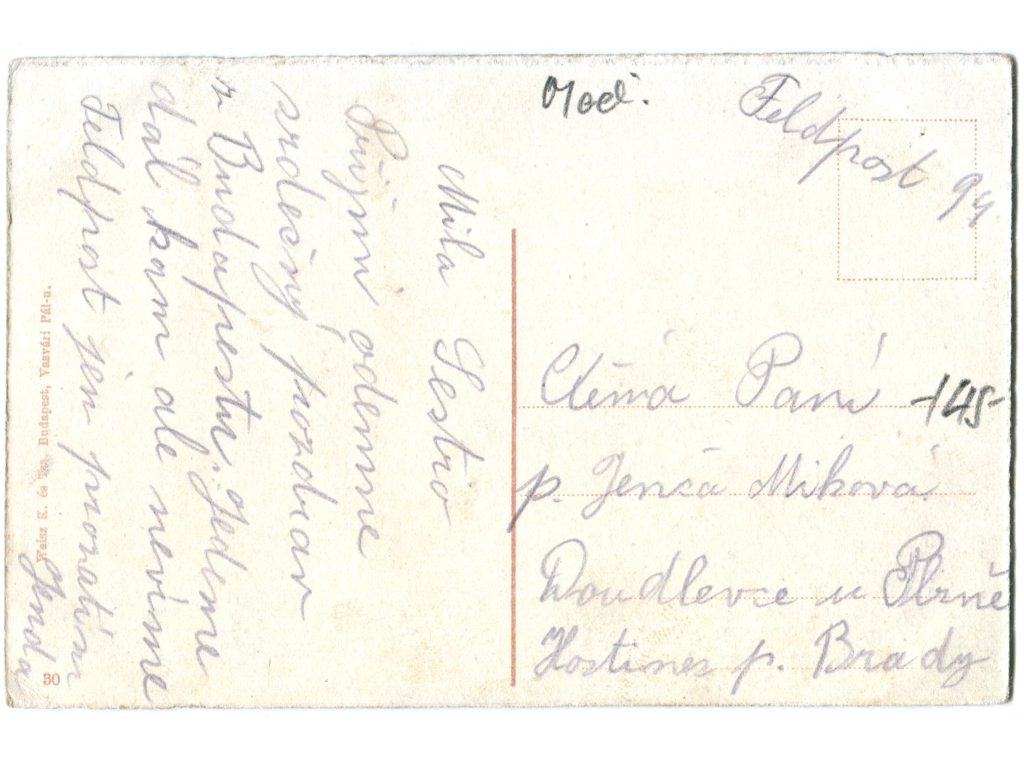 Milá Sestro
Přijmi odemne
srdečný pozdrav
z Budapestu. Jedeme
dál kam ale nevíme
Feldpost jen prozatím
Jenda
Feldpost 94
-145-
Ctěná Paní
p. Jenča Miková
Doudlevce u Plzně
Hostinec p. Brady
Weisz K. és Budapest, Vasvári Pál-u.
30